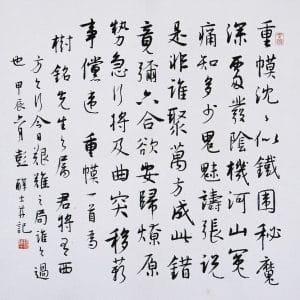 重幙沈沈似鐵圍秘魔
深處發陰機河山冤
痛知多少鬼魅譸張說
是非誰聚萬方成此錯
竟彌六合欲安歸燎原
勢急行將及曲突移薪
事儻違 重幙一首為
樹銘先生之屬 君將有西
方之行今日艱難之局誰之過
也 甲辰六月彭醇士并記